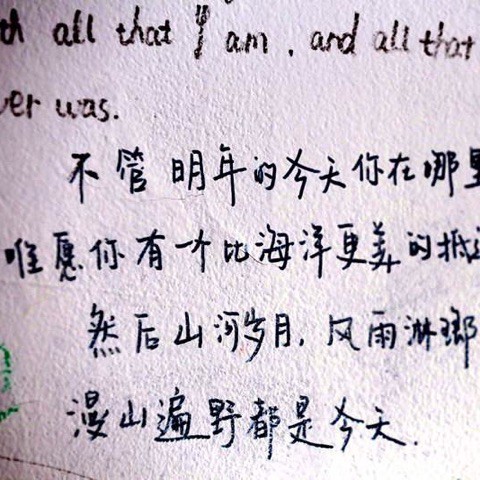 th all that I am, and all that
ver was.
不管明年的今天你在哪里
唯愿你有一个比海洋更美的抵
然后山河岁月,风雨淋瑯
漫山遍野都是今天.